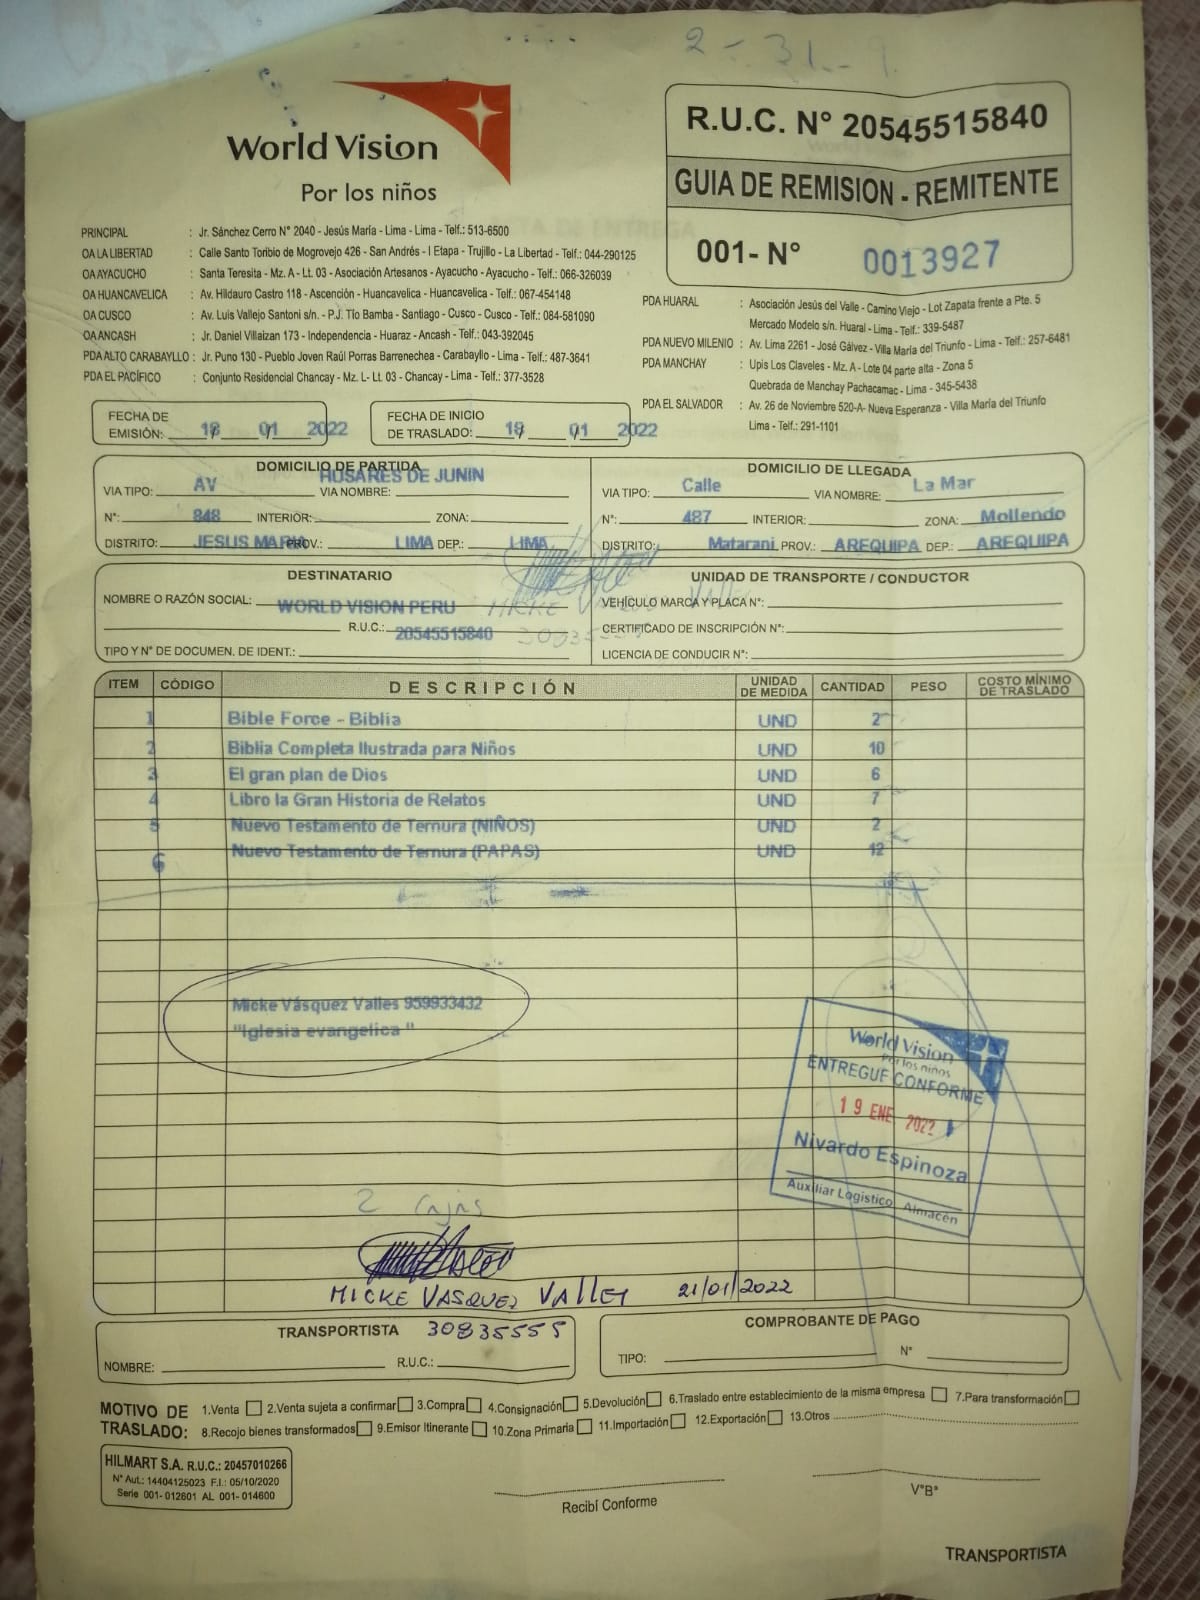 World Vision
Por los niños
R.U.C. N° 20545515840
GUIA DE REMISION - REMITENTE
001- N° 0013927
PRINCIPAL : Jr. Sánchez Cerro N° 2040 - Jesús María - Lima - Telf.: 513-6500
OA LA LIBERTAD : Calle Santo Toribio de Mogrovejo 426 - San Andrés - I Etapa - Trujillo - La Libertad - Telf: 044-290125
OA AYACUCHO : Santa Teresita - Mz. A - Lt. 03 - Asociación Artesanos - Ayacucho - Ayacucho - Telf.: 066-326039
OA HUANCAVELICA : Av. Hildauro Castro 118 - Ascención - Huancavelica - Huancavelica - Telf.: 067-454148
OA CUSCO : Av. Luis Vallejo Santoni s/n. - P.J. Tío Bamba - Santiago - Cusco - Cusco - Telf.: 084-581090
OA ANCASH : Jr. Daniel Villaizan 173 - Independencia - Huaraz - Ancash - Telf.: 043-392045
PDA ALTO CARABAYLLO : Jr. Puno 130 - Pueblo Joven Raúl Porras Barrenechea - Carabayllo - Lima - Telf.: 487-3641
PDA EL PACÍFICO : Conjunto Residencial Chancay - Mz. L- Lt. 03 - Chancay - Lima - Telf.: 377-3528
PDA HUARAL : Asociación Jesús del Valle - Camino Viejo - Lot Zapata frente a Pte. 5
Mercado Modelo s/n. Huaral - Lima - Telf.: 339-5487
PDA NUEVO MILENIO : Av. Lima 2261 - José Gálvez - Villa María del Triunfo - Lima - Telf.: 257-6481
PDA MANCHAY : Upis Los Claveles - Mz. A - Lote 04 parte alta - Zona 5
Quebrada de Manchay Pachacamac - Lima - 345-5438
PDA EL SALVADOR : Av. 26 de Noviembre 520-A- Nueva Esperanza - Villa María del Triunfo
Lima - Telf.: 291-1101
FECHA DE EMISIÓN: 18 01 2022
FECHA DE INICIO DE TRASLADO: 19 01 2022
DOMICILIO DE PARTIDA
VIA TIPO: AV VIA NOMBRE: HUSARES DE JUNIN
N°: 848 INTERIOR: ZONA:
DISTRITO: JESUS MARIA PROV.: LIMA DEP.: LIMA
DOMICILIO DE LLEGADA
VIA TIPO: Calle VIA NOMBRE: La Mar
N°: 487 INTERIOR: ZONA: Mollendo
DISTRITO: Matarani PROV.: AREQUIPA DEP.: AREQUIPA
DESTINATARIO
NOMBRE O RAZÓN SOCIAL: WORLD VISION PERU
R.U.C.: 20545515840
TIPO Y N° DE DOCUMEN. DE IDENT.:
UNIDAD DE TRANSPORTE / CONDUCTOR
VEHÍCULO MARCA Y PLACA N°:
CERTIFICADO DE INSCRIPCIÓN N°:
LICENCIA DE CONDUCIR N°:
ITEM CÓDIGO DESCRIPCIÓN UNIDAD DE MEDIDA CANTIDAD PESO COSTO MÍNIMO DE TRASLADO
1 Bible Force - Biblia UND 2
2 Biblia Completa Ilustrada para Niños UND 10
3 El gran plan de Dios UND 6
4 Libro la Gran Historia de Relatos UND 7
5 Nuevo Testamento de Ternura (NIÑOS) UND 2
6 Nuevo Testamento de Ternura (PAPAS) UND 12
Micke Vásquez Valles 959933432
"Iglesia evangelica "
World Vision
Por los niños
ENTREGUE CONFORME
19 ENE 2022
Nivardo Espinoza
Auxiliar Logistico Almacén
2 Cajas
MICKE VASQUEZ Valles 21/01/2022
TRANSPORTISTA 30835555
NOMBRE: R.U.C.:
COMPROBANTE DE PAGO
TIPO: N°
MOTIVO DE TRASLADO:
1.Venta 2.Venta sujeta a confirmar 3.Compra 4.Consignación 5.Devolución 6.Traslado entre establecimiento de la misma empresa 7.Para transformación
8.Recojo bienes transformados 9.Emisor Itinerante 10.Zona Primaria 11.Importación 12.Exportación 13.Otros
HILMART S.A. R.U.C.: 20457010266
N° Aut.: 14404125023 F.I.: 05/10/2020
Serie 001- 012601 AL 001- 014600
Recibí Conforme
V°B°
TRANSPORTISTA